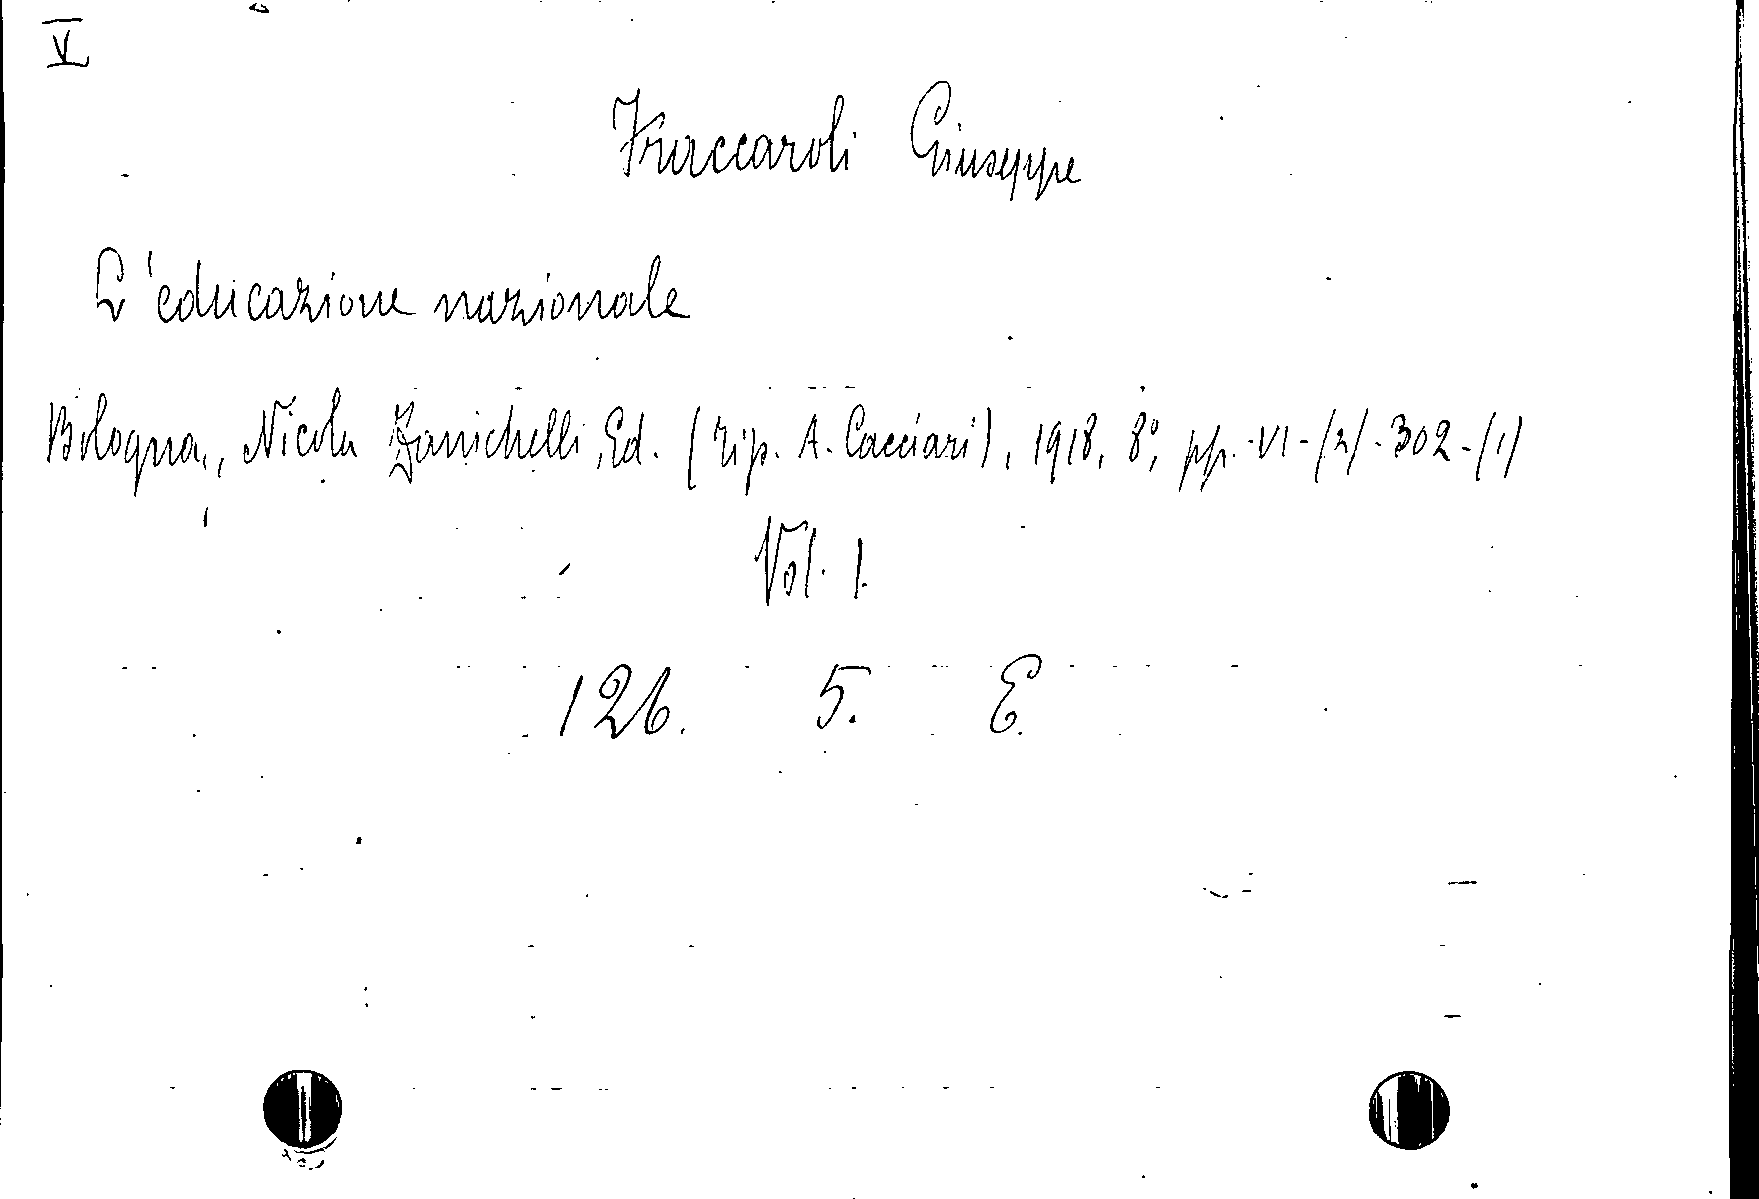 V
Fraccaroli Giuseppe
L'educazione nazionale
Bologna, Nicola Zanichelli, Ed. (tip. A. Cacciari), 1918, 8°, pp. VI-(2)-302-(1)
Vol. 1.
126. 5. E.